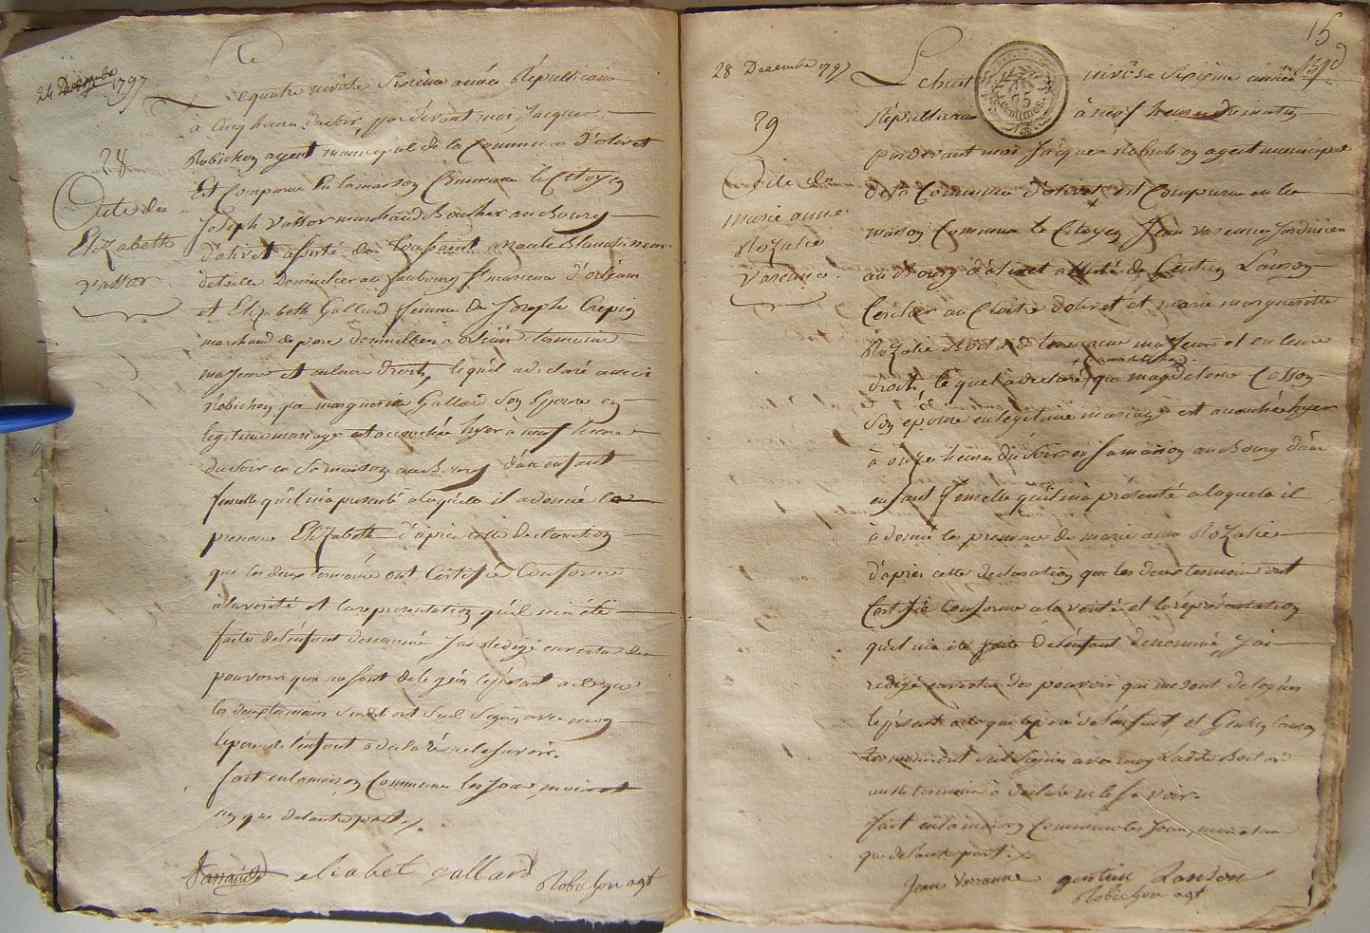 24 Décembre 1797
28
Acte de
Elizabeth
vassor
Le quatre nivôse Sixième année Républicaine
à Cinq heures du soir, pardevant moi Jacques
Robichon agent municipal de la Commune d'olivet
Est Comparu En la maison Commune le Citoyen
Joseph vassor marchand Boucher au bourg
d'olivet assisté de Toussaint
détaille Domicilié au faubourg St marceau d'orléans
et Elizabeth Gallard femme de Joseph Crepin
marchand de porc domicilliée à orléans témoins
majeurs et en leurs droits, lequel a déclaré à moi
Robichon que margueritte Gallard Son Epouse en
legitime mariage est accouchée hyer a neuf heures
du soir en Sa maison au bourg d'un enfant
femelle qu'il m'a presenté a laquelle il a donné le
prenom Elizabeth d'après cette declaration
que les deux temoins ont Certifié Conforme
a la vérité et la representation qu'il m'a été
faite de l'enfant denommé J'ai Redigé en vertu des
pouvoirs qui me sont delegués le présent acte que
les deux temoins ont Seul Signés avec moy
le pere de l'enfant a declaré ne le savoir.
fait en la maison Commune les Jour, mois et
an que de l'autre part.
elizabet gallard Robichon agt
15
28 Decembre 1797
29
Acte de
Marie anne
Rozalie
varenne
Le huit nivôse Sixième année
Républicaine à neuf heures du matin
pardevant moi Jacques Robichon agent municipal
de la Commune d'olivet est Comparu en la
maison Commune le Citoyen Jean varenne Jardinier
au Bourg d'olivet assisté de Gentien Lanson
Cerclier au Cloitre d'olivet et marie margueritte
Rozalie temoins majeurs et en leurs
droits, lequel a declaré que magdeleine Cosson
Son epouse en legitime mariage est accouchée hyer
à onze heures du Soir en Sa maison au bourg d'un
enfant femelle qu'il m'a présenté a laquelle il
à donné les prenoms de marie anne Rozalie
d'après cette declaration que les deux temoins ont
Certifié Conforme a la verité et la représentation
qu'il m'a été faite de l'enfant denommé J'ai
redigé en vertu des pouvoirs qui me sont delegués
le présent acte que le pere de l'enfant, et Gentien Lanson
ont Seul Signés avec moy
autre temoin a declaré ne le Savoir.
fait en la maison Commune les Jour, mois et an
que de l'autre part.
Jean Varenne gentien Lanson
Robichon agt